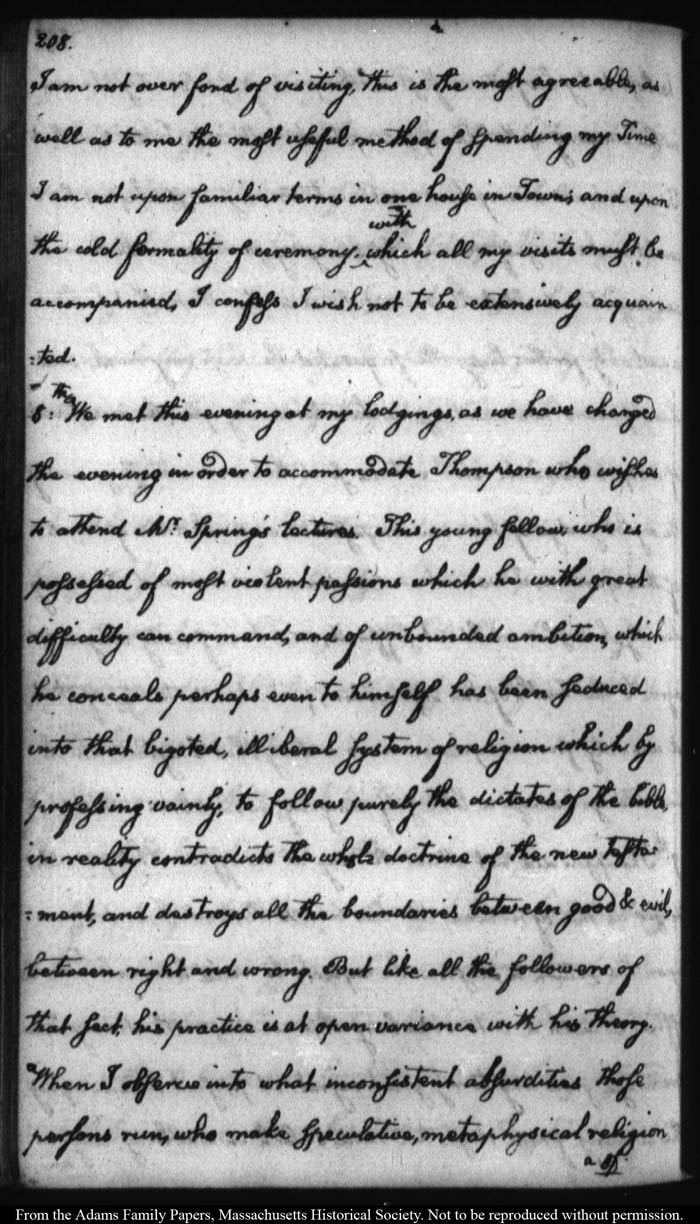 208.
I am not over fond of visiting, this is the most agreeable, as
well as to me the most useful method of spending my Time
I am not upon familiar terms in one house in Town; and upon
with
the cold formality of ceremony, ‸ which all my visits must be
accompanied, I confess I wish not to be extensively acquain
:ted.
8:th We met this evening at my lodgings, as we have changed
the evening in order to accommodate Thompson who wishes
to attend Mr. Spring's lectures. This young fellow, who is
possessed of most violent passions which he with great
difficulty can command, and of unbounded ambition, which
he conceals perhaps even to himself has been seduced
into that bigoted, illiberal system of religion which by
professing vainly, to follow purely the dictates of the bible,
in reality contradicts the whole doctrine of the new testa:
:ment, and destroys all the boundaries between good & evil,
between right and wrong. But like all the followers of
that sect, his practice is at open variance with his theory.
"When I observe into what inconsistent absurdities those
persons run, who make speculative, metaphysical religion
a
From the Adams Family Papers, Massachusetts Historical Society. Not to be reproduced without permission.